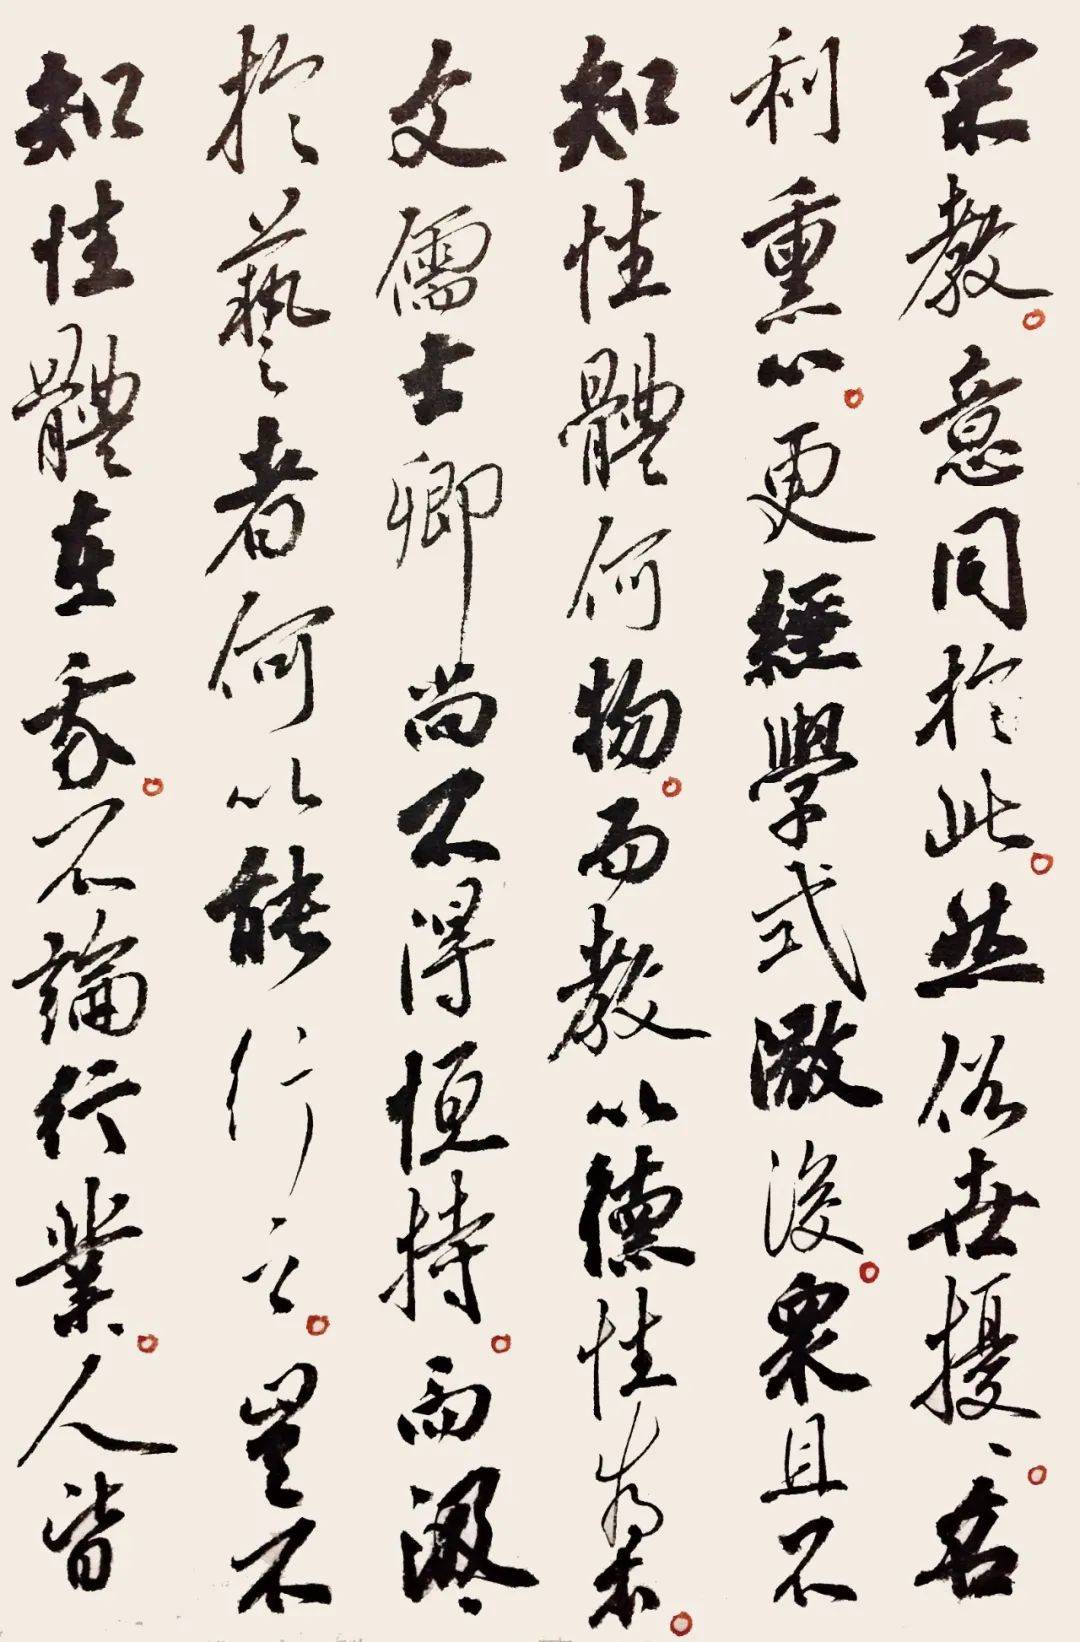 宗教。意同於此。然俗世擾、。名
利熏心。更經學式微後。衆且不
知性體何物。而教以德性為本。
文儒士卿尚不得恒持。而汲、
於藝者何以能行之。豈不
知性體在我。不論行業。人皆